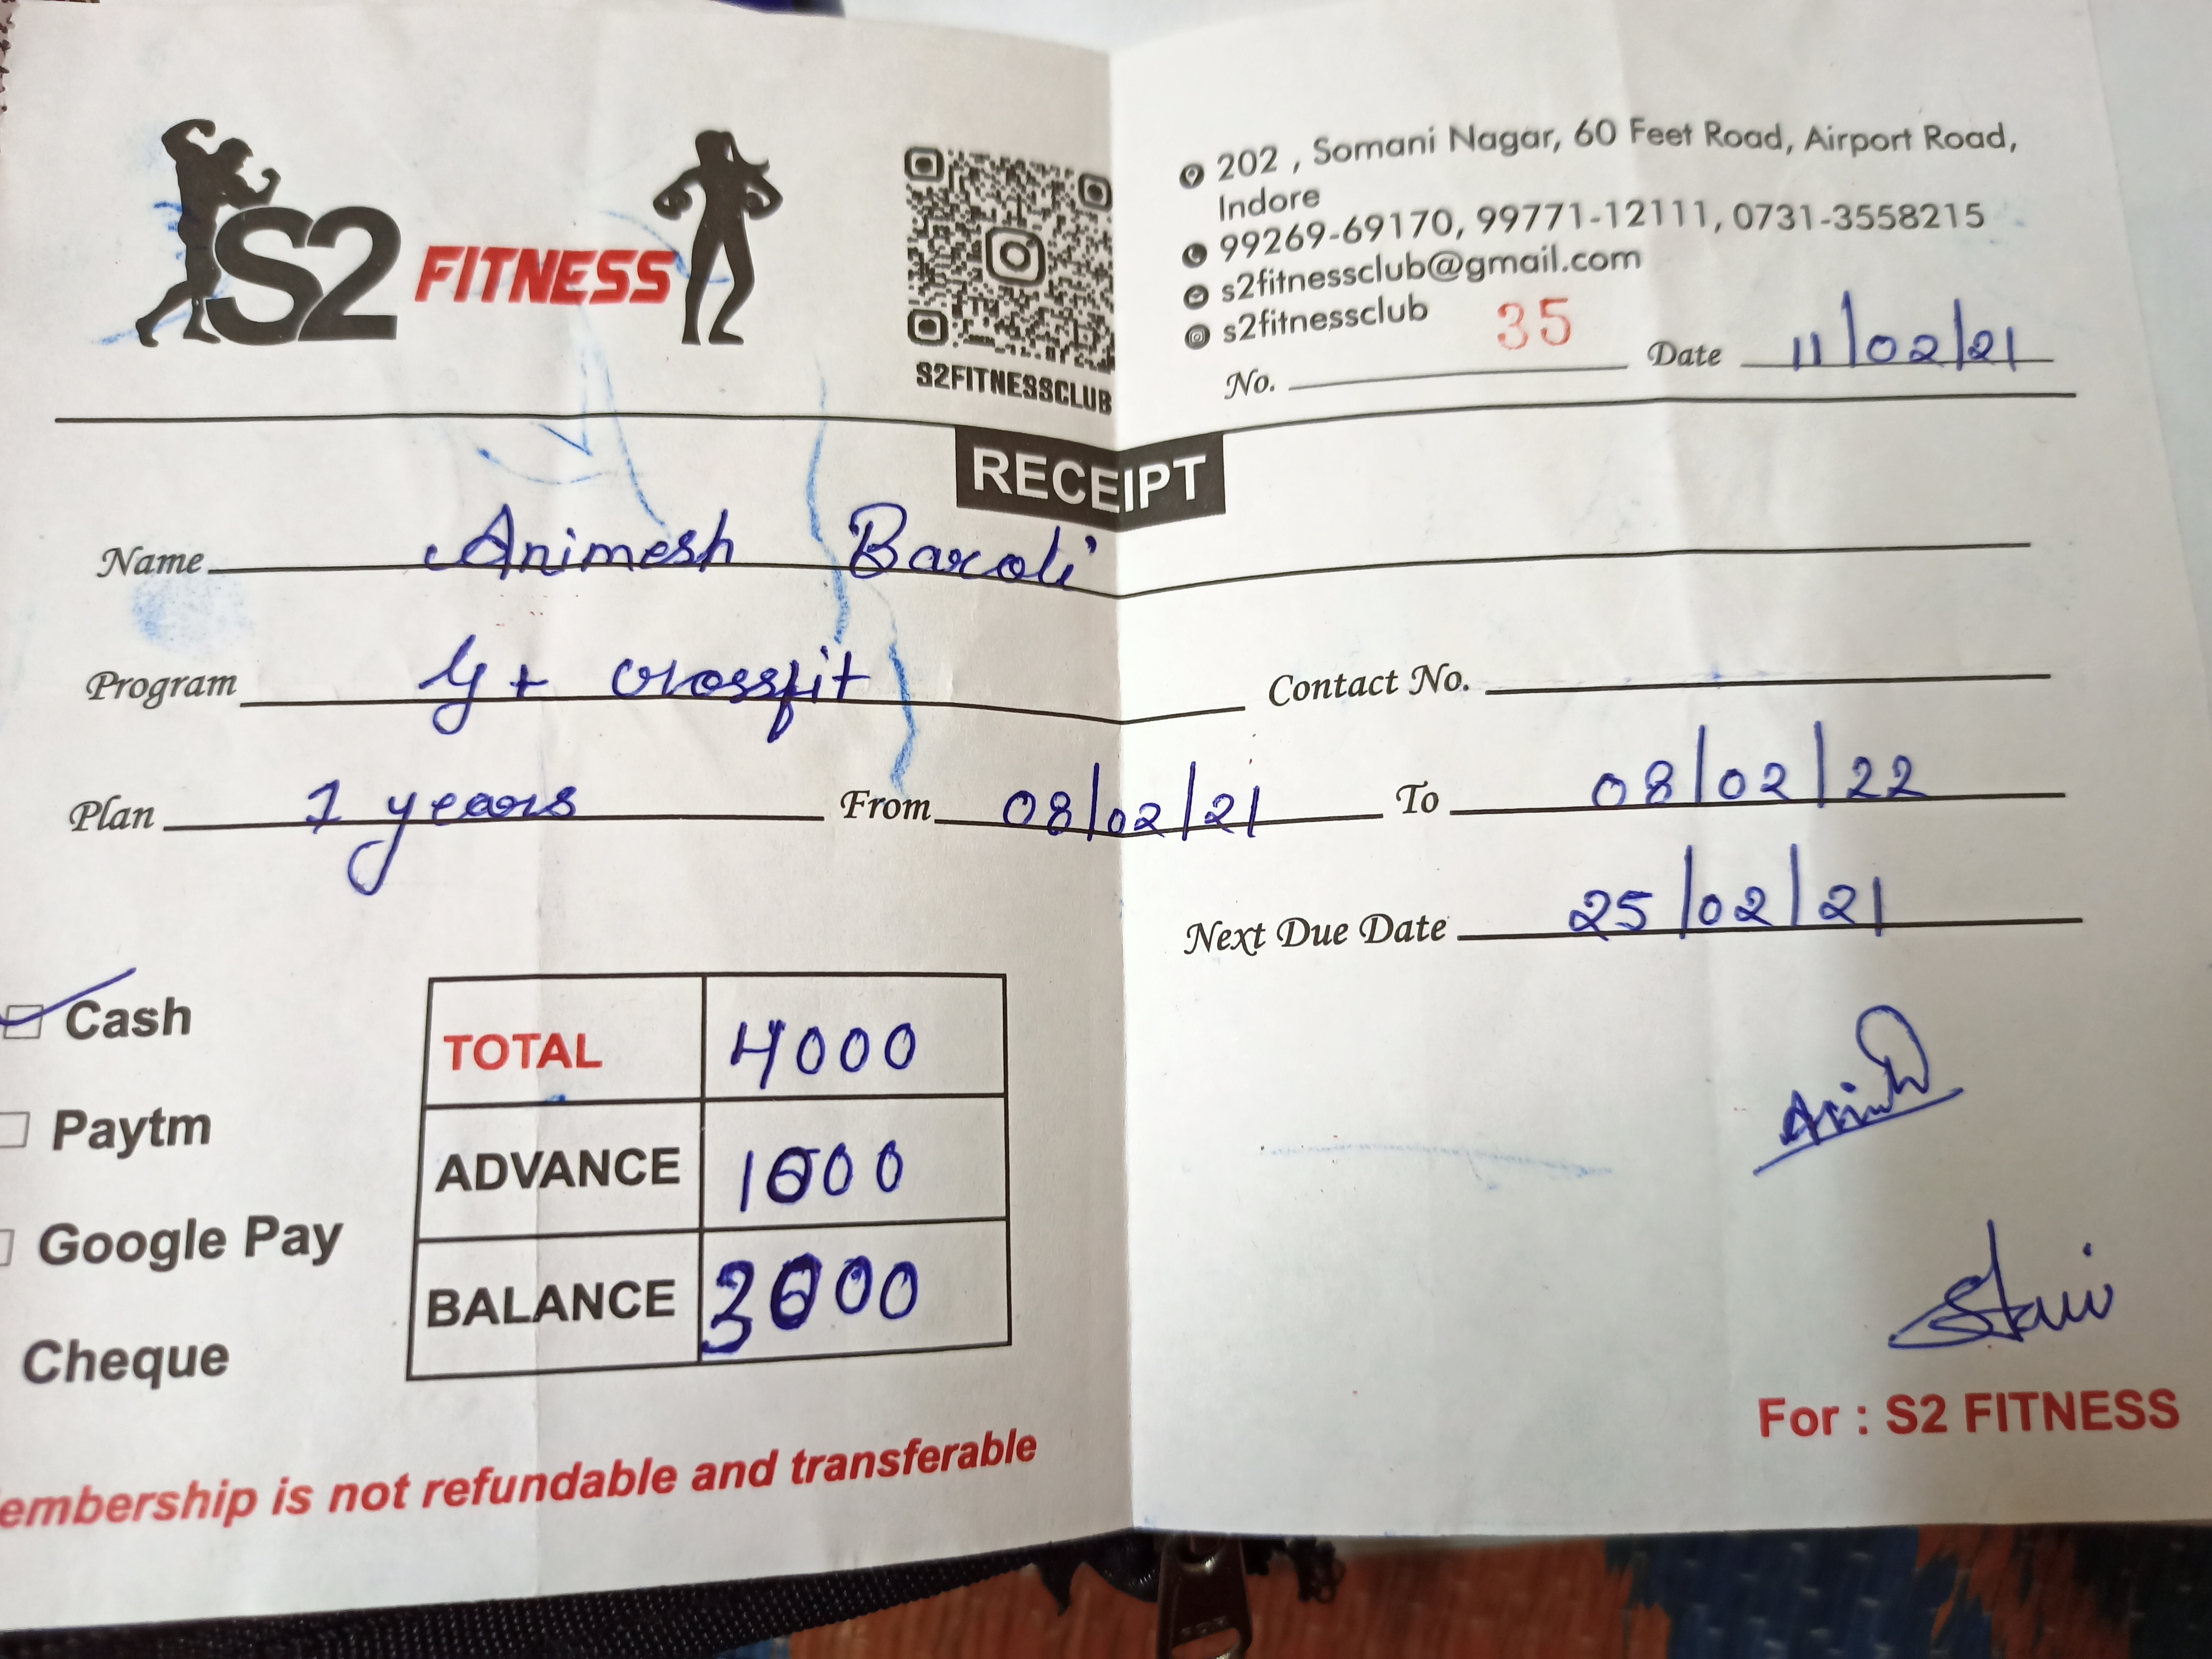 S2 FITNESS
S2FITNESSCLUB
202 , Somani Nagar, 60 Feet Road, Airport Road,
Indore
99269-69170, 99771-12111, 0731-3558215
s2fitnessclub@gmail.com
s2fitnessclub
No. 35 Date 11/02/21
RECEIPT
Name Animesh Baroli
Program G+ crossfit Contact No.
Plan 1 years From 08/02/21 To 08/02/22
Next Due Date 25/02/21
Cash
Paytm
Google Pay
Cheque
TOTAL 4000
ADVANCE 1000
BALANCE 3000
For : S2 FITNESS
embership is not refundable and transferable